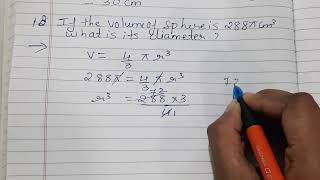 = 30 cm
18. If the volume of sphere is 288π cm³
What is its diameter ?
V = 4/3 π r³
288π = 4/3 π r³
72
r³ = 288 × 3
4 1
72